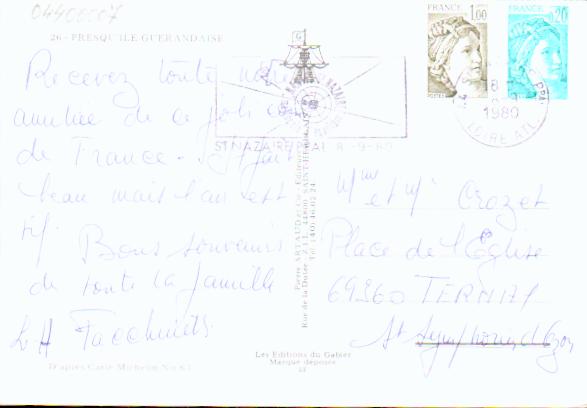 04400007
26 - PRESQU'ILE GUERANDAISE
FRANCE 1.00
POSTES
FRANCE 0.20
1980
LOIRE ATL.
ST NAZAIRE PPAL 8 -9-80
Recevez toute notre
amitiée de ce joli coin
de France. Il fait
beau mais l'air est
Bons souvenirs
de toute la famille
Pierre ARTAUD et Cie - Editeurs
Rue de la Dutée - Z.I.L. 44800 SAINT-HERBLAIN
Tél. (40) 46.02.24
Mme et Mr Crozet
Place de l'Église
69360 TERNAY
St Symphorien d'Ozon
Les Editions du Gabier
Marque déposée
D'après Carte Michelin No 63